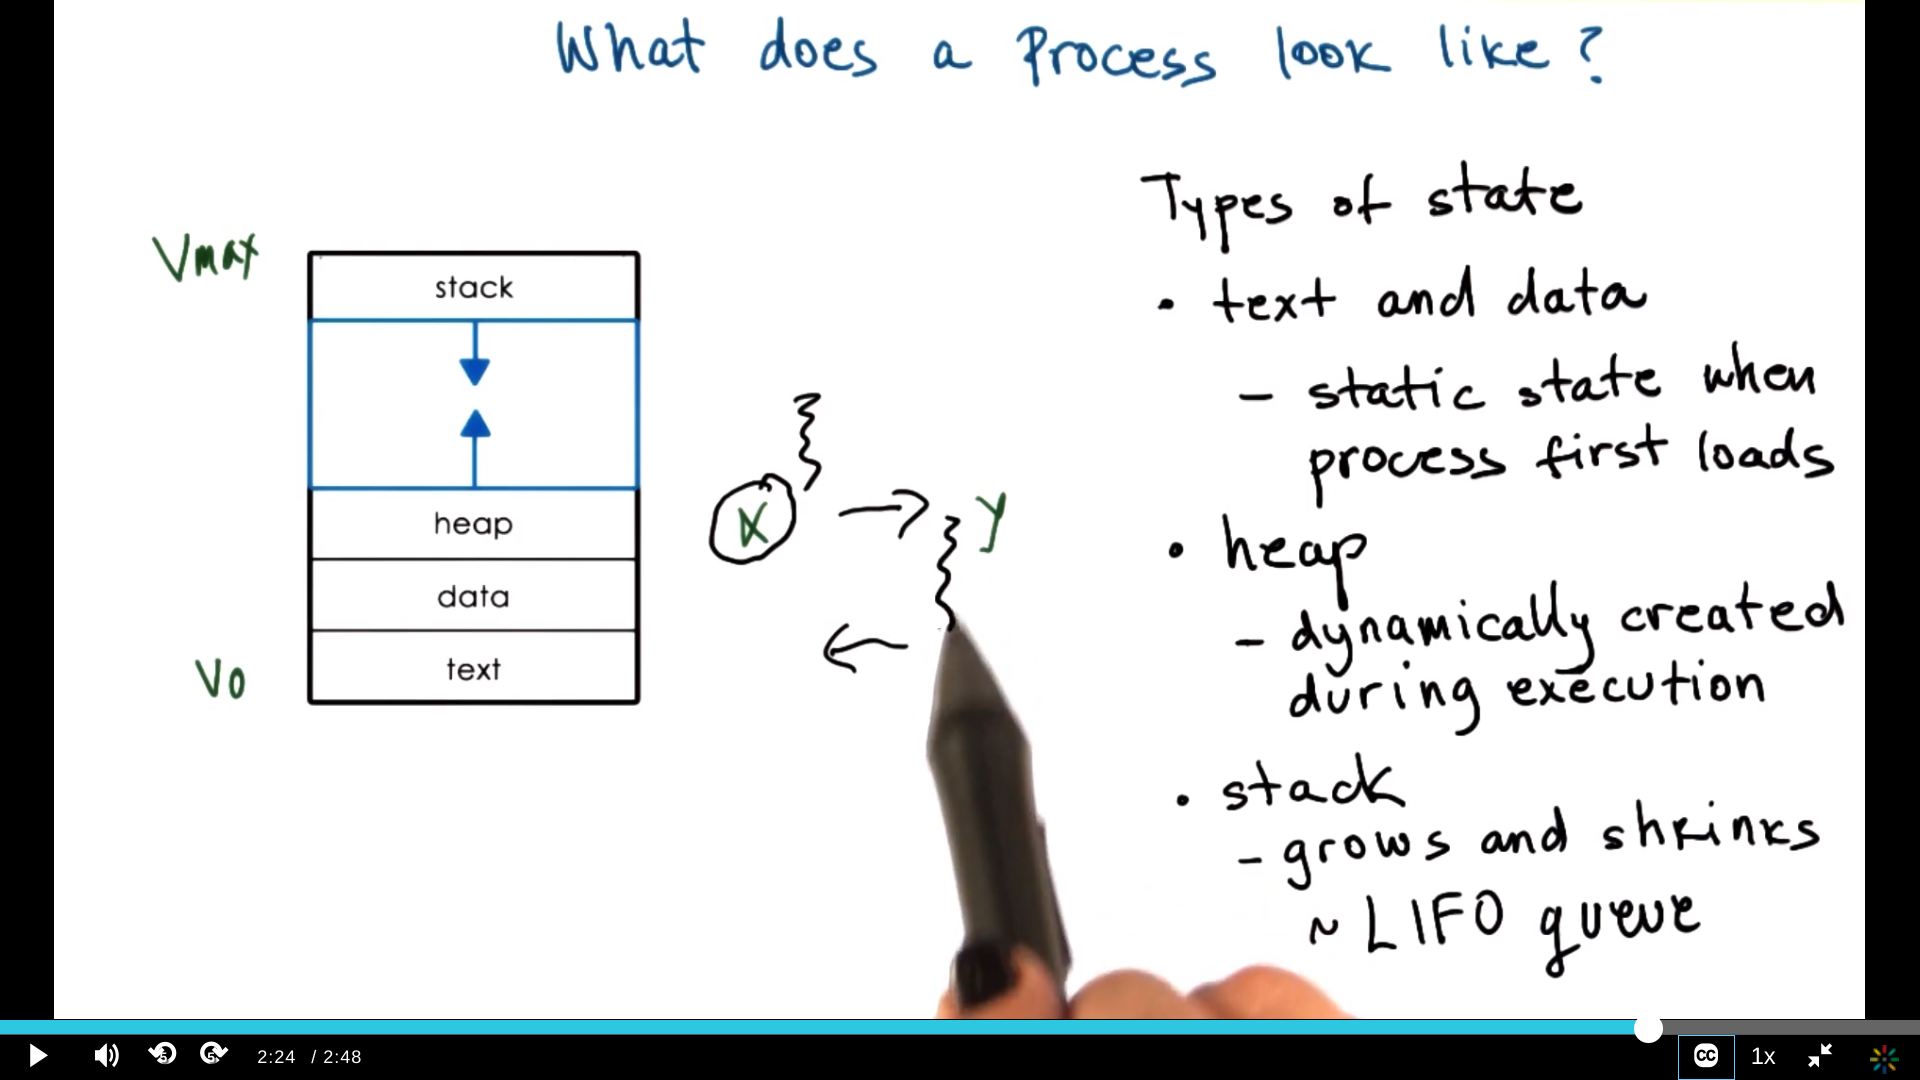 What does a Process look like?
Vmax
stack
heap
data
text
V0
X
y
Types of state
• text and data
- static state when
process first loads
• heap
- dynamically created
during execution
• stack
- grows and shrinks
~ LIFO queue
5
5
2:24 / 2:48
CC
1x